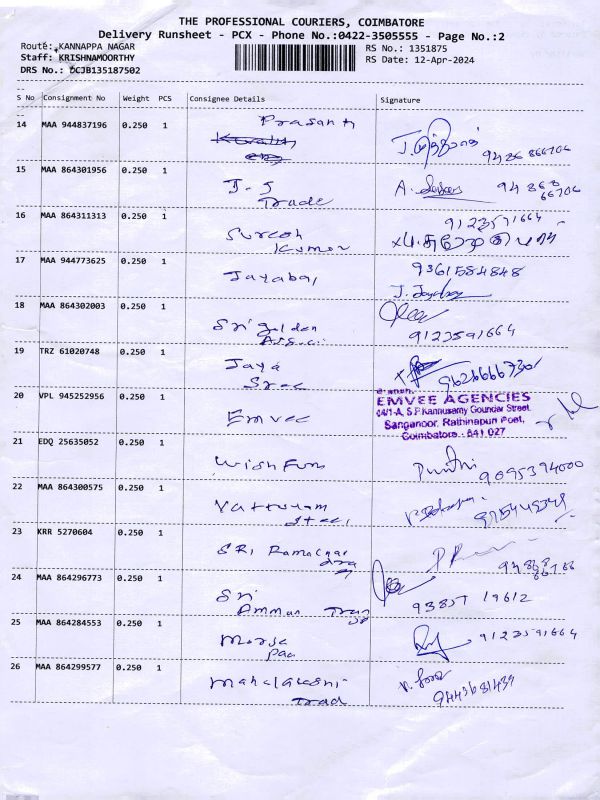 THE PROFESSIONAL COURIERS, COIMBATORE
Delivery Runsheet - PCX - Phone No.:0422-3505555 - Page No.:2
Route: KANNAPPA NAGAR
RS No.: 1351875
Staff: KRISHNAMOORTHY
RS Date: 12-Apr-2024
DRS No.: DCJB135187502
S No Consignment No Weight PCS Consignee Details Signature
14 MAA 944837196 0.250 1 Prasanth
15 MAA 864301956 0.250 1 J-J
Trade
16 MAA 864311313 0.250 1 Suresh
Kumar
9123591664
17 MAA 944773625 0.250 1 Jayabal 9361584848
J. Jayabal
18 MAA 864302003 0.250 1 Sri Golden
9123591664
19 TRZ 61020748 0.250 1 Jaya
Sree
20 VPL 945252956 0.250 1 Emvee
EMVEE AGENCIES
04/1-A, S.P. Kannusamy Gounder Street,
Sanganoor, Rathinapuri Post,
Coimbatore - 641 027
21 EDQ 25635052 0.250 1 Wish Fun
9095394000
22 MAA 864300575 0.250 1
Steel
23 KRR 5270604 0.250 1 SRI
24 MAA 864296773 0.250 1 Sri
Amman
93857 19612
25 MAA 864284553 0.250 1 9123591664
26 MAA 864299577 0.250 1 Mahalakshmi
Trad
9443681439